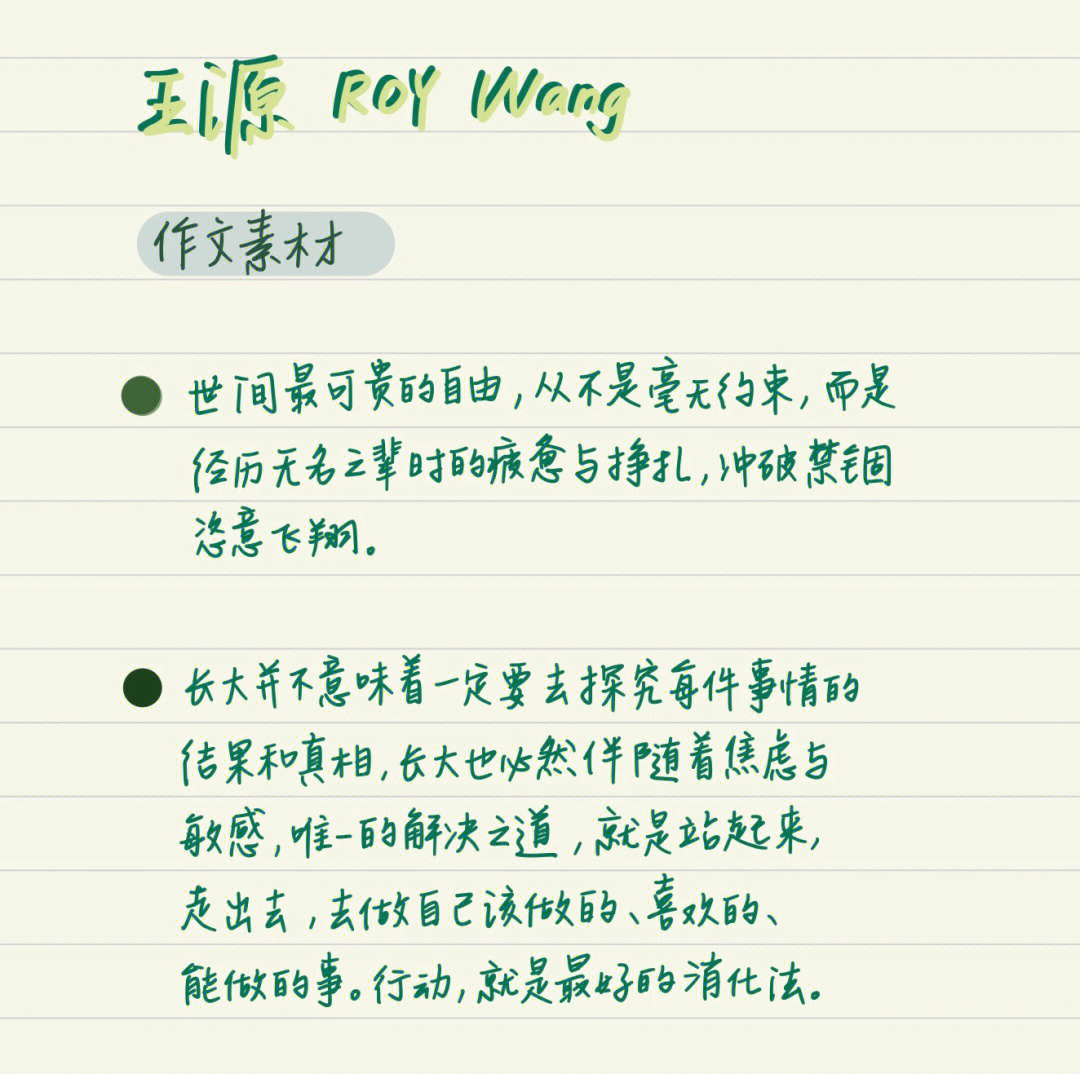 王源 ROY Wang
作文素材
世间最可贵的自由,从不是毫无约束,而是
经历无名之辈时的疲惫与挣扎,冲破禁锢
恣意飞翔。
长大并不意味着一定要去探究每件事情的
结果和真相,长大也必然伴随着焦虑与
敏感,唯一的解决之道,就是站起来,
走出去,去做自己该做的、喜欢的、
能做的事。行动,就是最好的消化法。